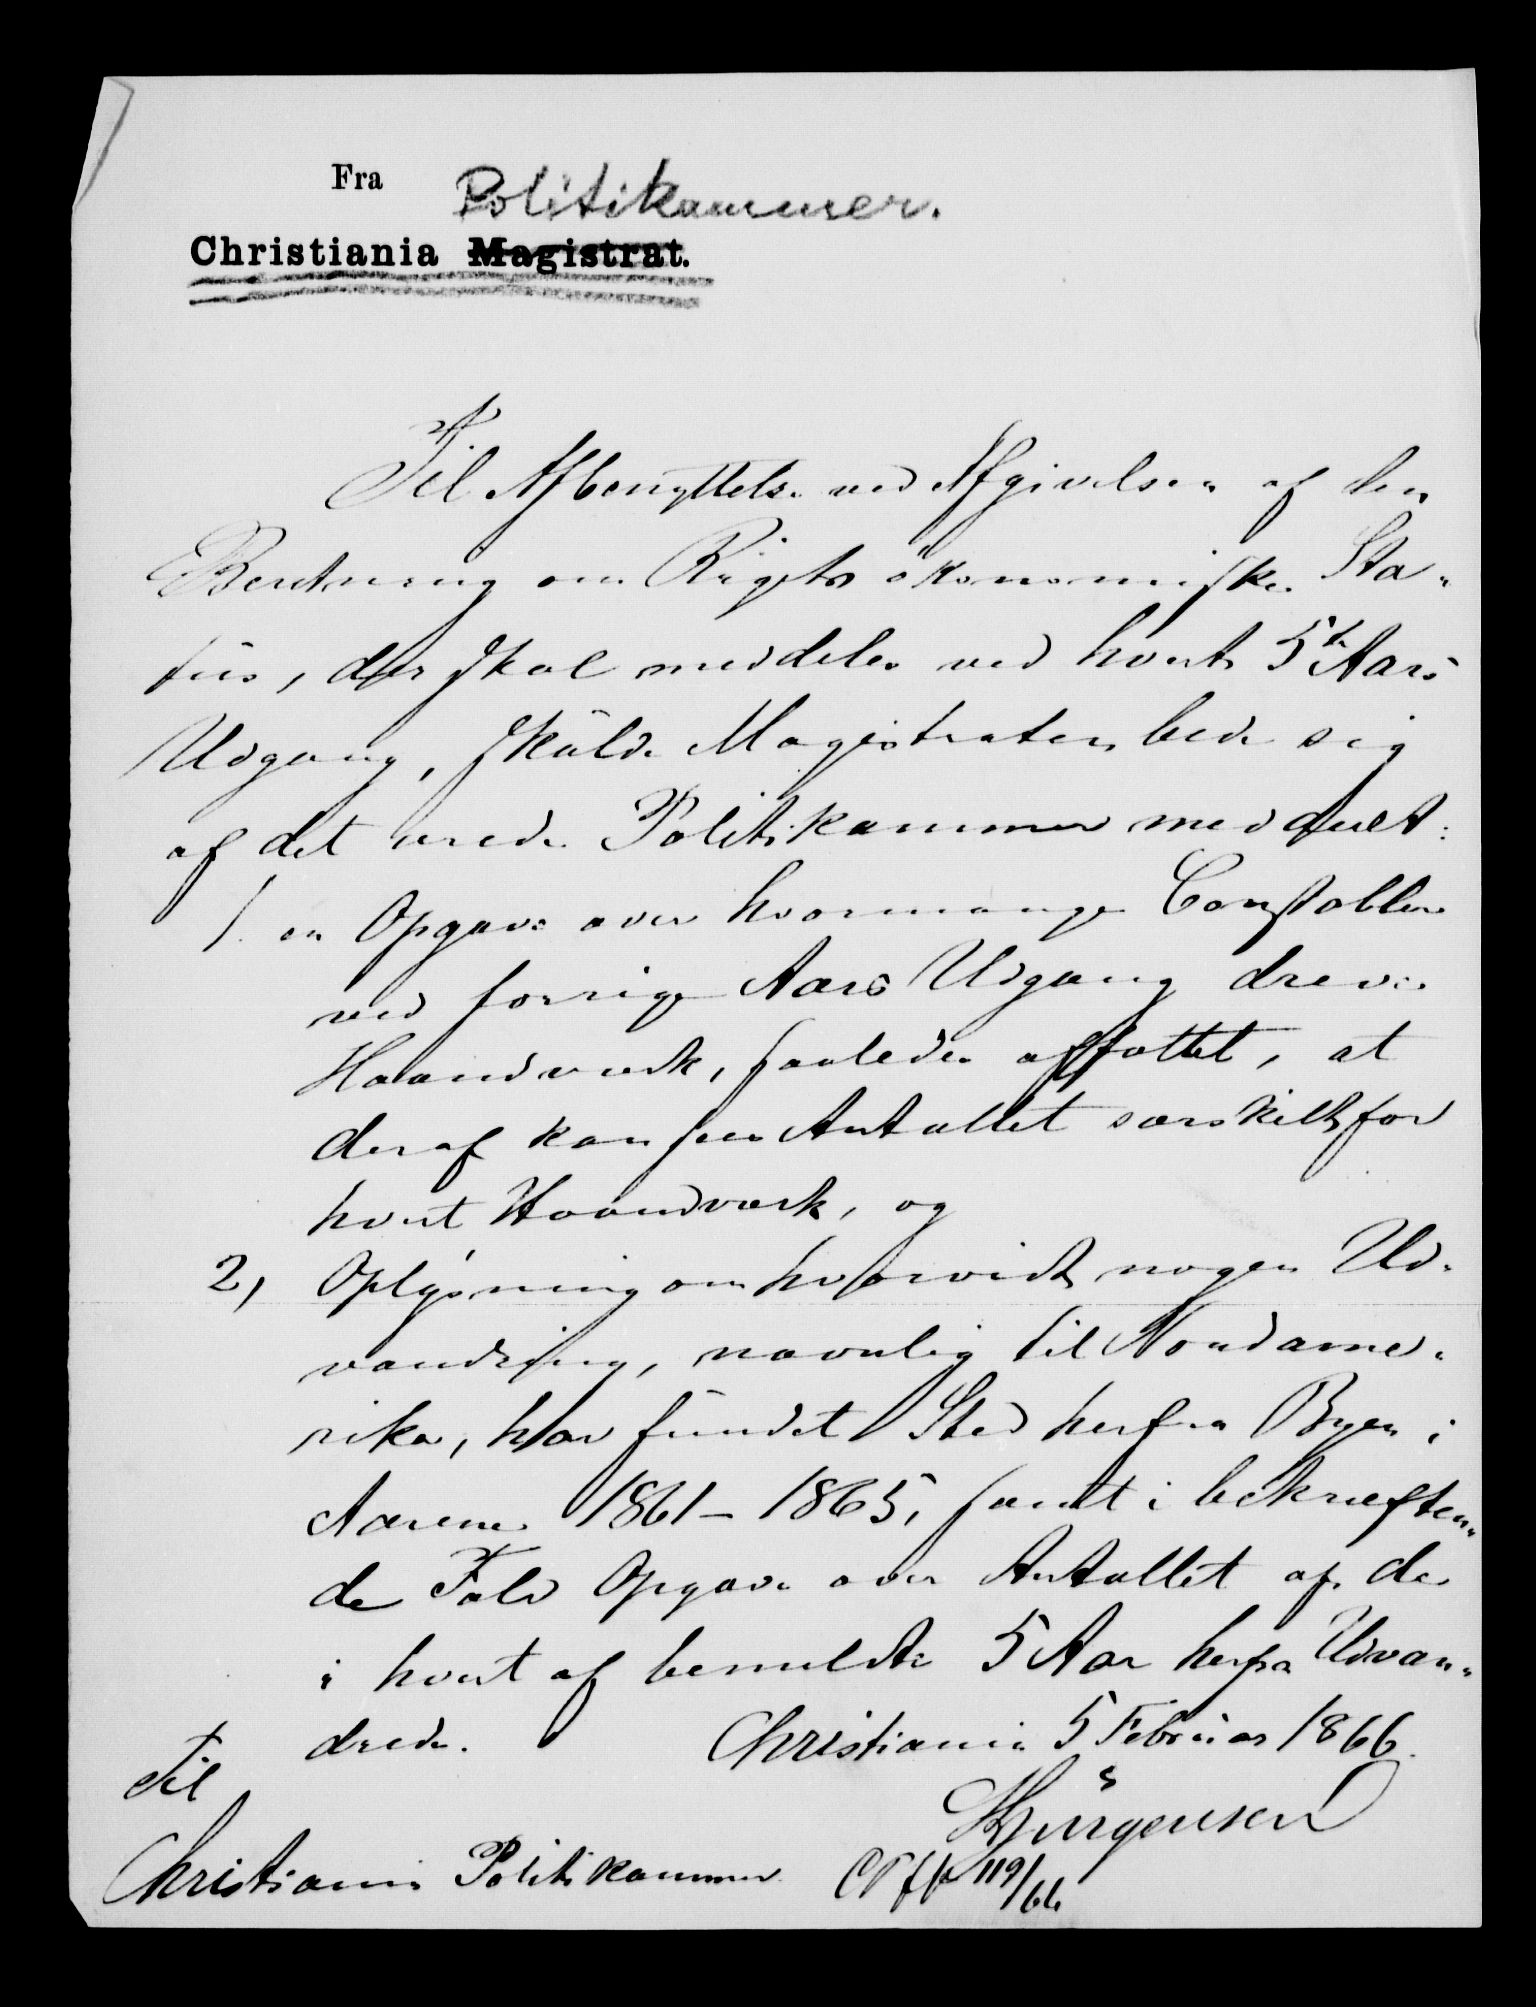 Fra
Politikammer.
Christiania Magistrat.
Til Afbenyttelse ved Afgivelsen af den
Beretning om Rigets økonomiske Sta-
tus, der skal meddeles ved hvert 5te Aars
Udgang, skulde Magistraten bede sig
af det ærede Politikammer meddeelt:
1. en Opgave over hvormange Constabler
ved forrige Aars Udgang drev
Haandværk, saaledes affattet, at
deraf kan sees Antallet særskilt for
hvert Haandværk, og
2, Oplysning om hvorvidt nogen Ud-
vandring, navnlig til Nordame-
rika, har fundet Sted herfra Byen i
Aarene 1861-1865, samt i bekræften-
de Fald Opgave over Antallet af de
i hvert af bemeldte 5 Aar herfra Udvan-
drede.
Christiania 5 Februar 1866.
Jürgensen
Til
Christiania Politikammer
119/66